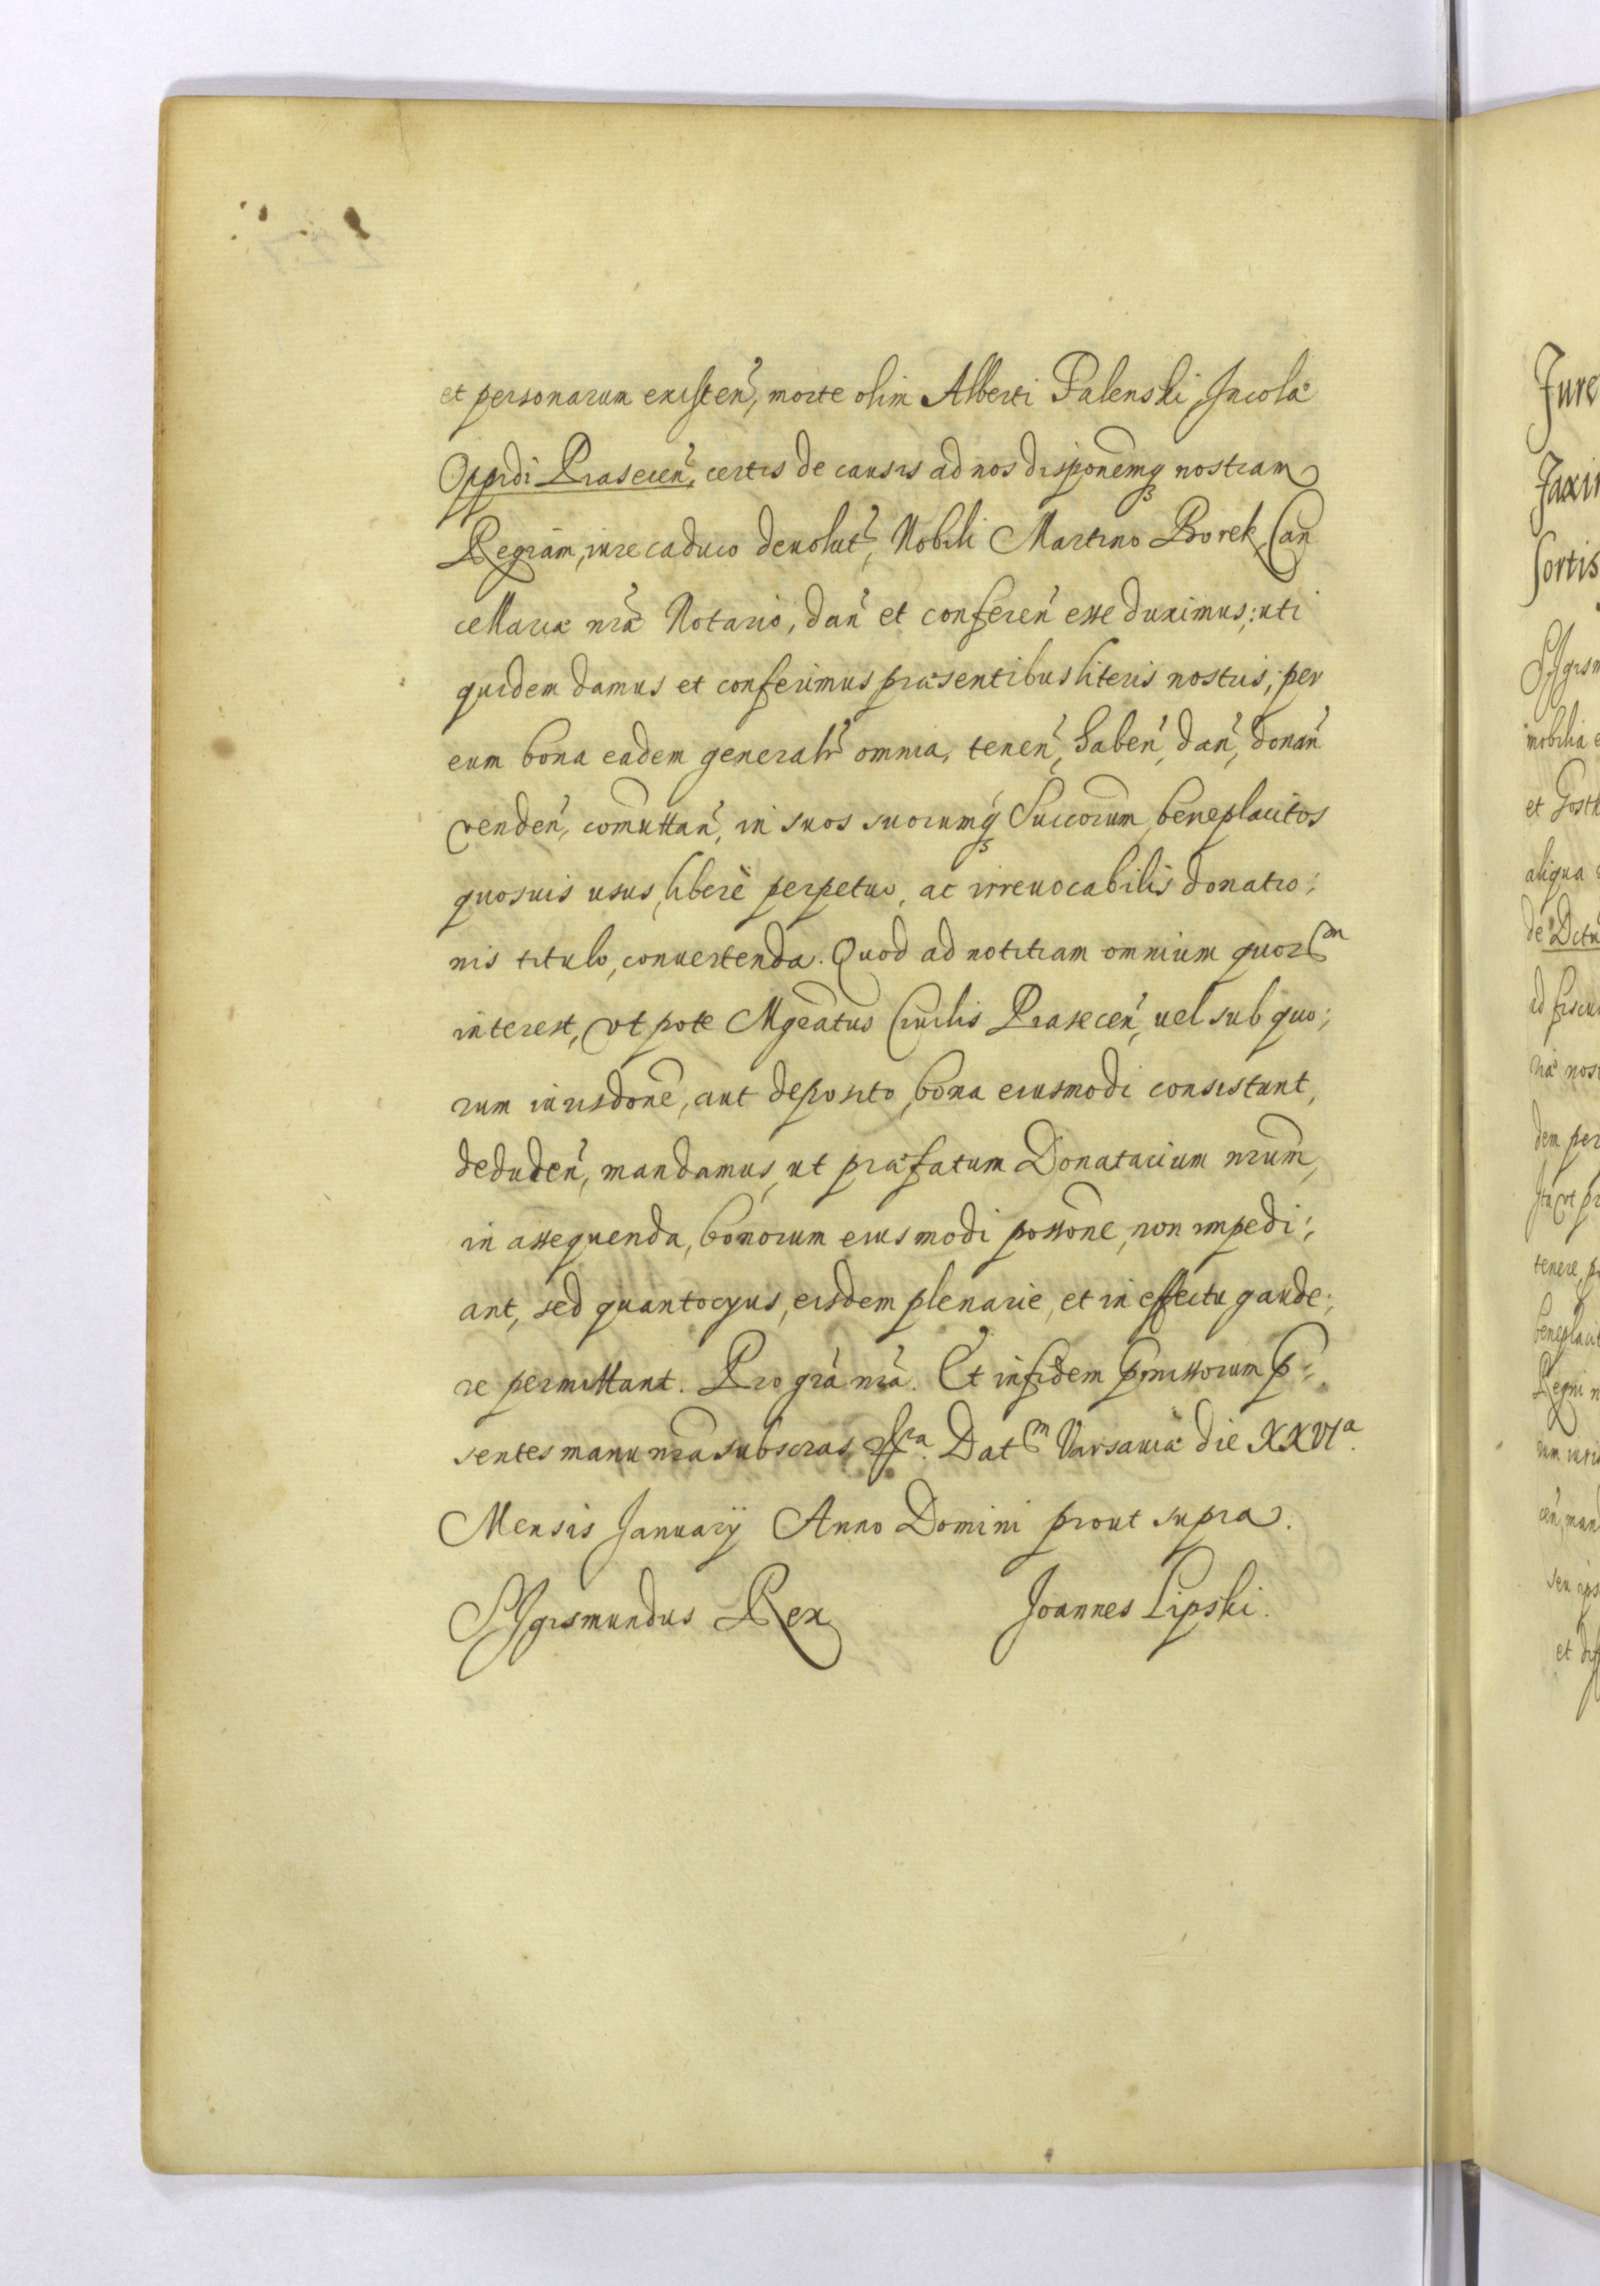 et personarum existen̄, morte olim Alberti Falenski Incolæ
Oppidi Prasecen̄, certis de causis ad nos disponem̄q₃ nostram
Regiam, iure caduco deuolut̄, Nobili Martino Borek Can
cellariæ nr̄æ Notario, dan̄ et conferen̄ esse duximus; uti
quidem damus et conferimus præsentibus literis nostris, per
eum bona eadem generalr̄ omnia, tenen̄, haben̄, dan̄, donan̄
venden̄, com̄uttan̄, in suos suorumq₃ Succorum̄ beneplacitos
quosuis usus, liberè perpetuo, ac irreuocabilis donatio:
nis titulo, conuertenda. Quod ad notitiam omnium quorũ
interest, vt pote Mgeatus̄ Ciuilis Prasecen̄, uel sub quo:
rum iurisdone̅, aut deposito, bona eiusmodi consistunt,
deduden̄, mandamus, ut præfatum Donatarium nrum̄,
in assequenda, bonorum eiusmodi possone̅, non impedi:
ant, sed quantocyus, eisdem plenarie, et in effectu gaude:
re permittant. Pro gr̄a nr̄a. Et in fidem p̄missorum p̄:
sentes manu nr̄a subscras, &c. Datm Varsauiæ die XXVIa.
Mensis Januarÿ Anno Domini prout supra.
Sigismundus Rex Joannes Lipski.
Jure
sortis
mobilia e
aliqua
ad fiscu
dem per
tenere, p
Regni n
et di